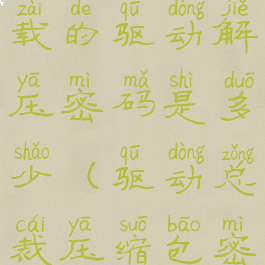 zài de qū dòng jiě
载的驱动解
yā mì mǎ shì duō
压密码是多
shǎo qū dòng zǒng
少（驱动总
cái yā suō bāo mì
裁压缩包密